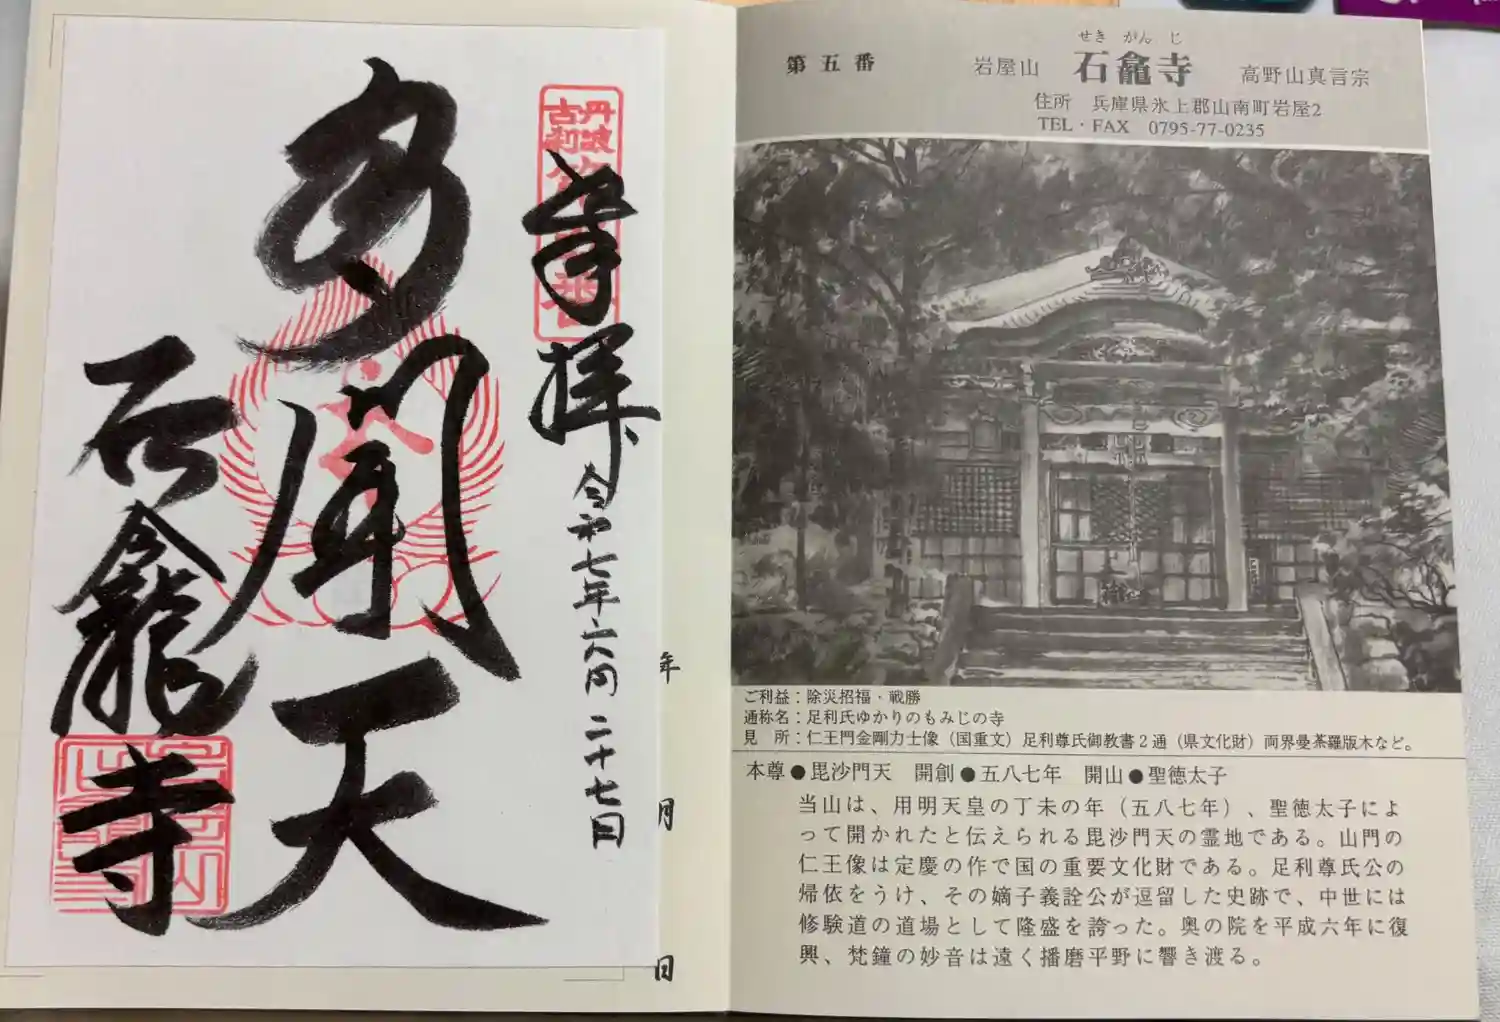 奉拝
令和七年六月二十七日
多聞天
石龕寺
丹波
古刹
年
月
日
せきがんじ
第五番 岩屋山 石龕寺 高野山真言宗
住所 兵庫県氷上郡山南町岩屋2
TEL・FAX 0795-77-0235
ご利益：除災招福・戦勝
通称名：足利氏ゆかりのもみじの寺
見 所：仁王門金剛力士像（国重文）足利尊氏御教書2通（県文化財）両界曼荼羅版木など。
本尊●毘沙門天 開創●五八七年 開山●聖徳太子
当山は、用明天皇の丁未の年（五八七年）、聖徳太子によ
って開かれたと伝えられる毘沙門天の霊地である。山門の
仁王像は定慶の作で国の重要文化財である。足利尊氏公の
帰依をうけ、その嫡子義詮公が逗留した史跡で、中世には
修験道の道場として隆盛を誇った。奥の院を平成六年に復
興、梵鐘の妙音は遠く播磨平野に響き渡る。